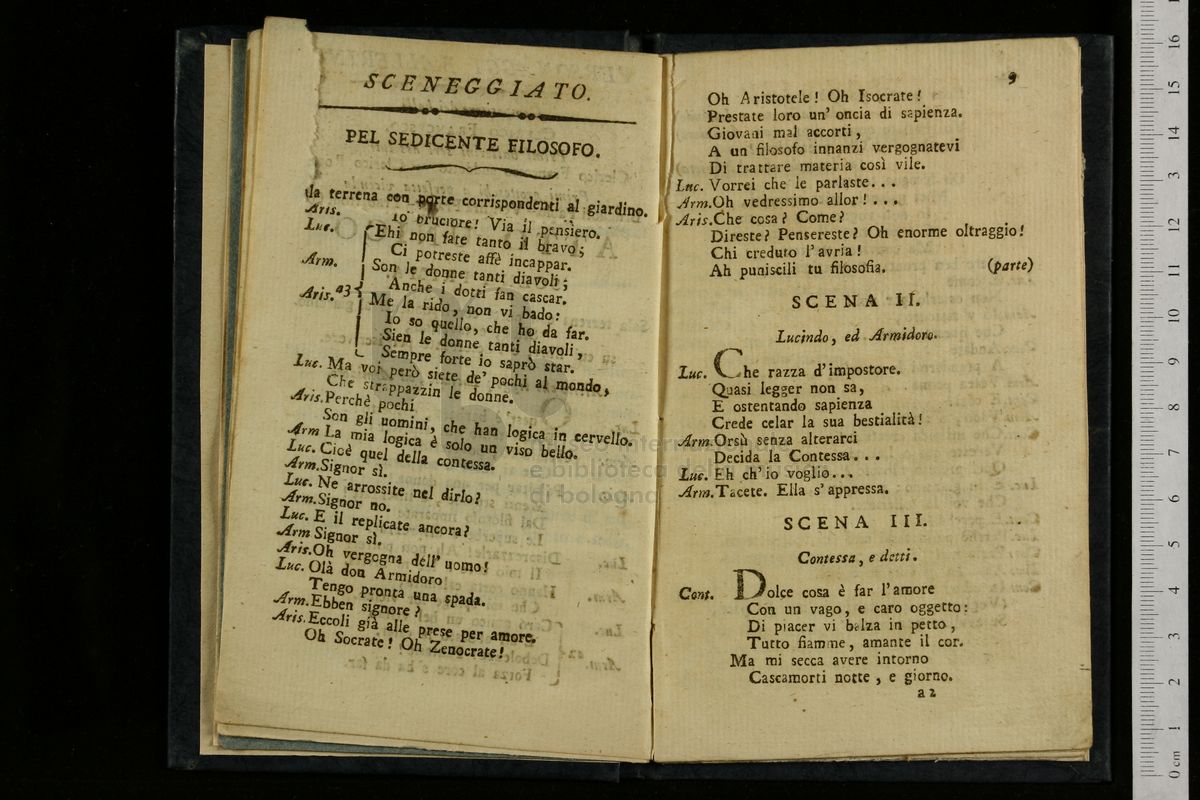 SCENEGGIATO.
PEL SEDICENTE FILOSOFO.
da terrena con porte corrispondenti al giardino.
Aris. Io bruciore! Via il pensiero.
Luc. Ehi non fate tanto il bravo;
Ci potreste affè incappar.
Arm. Son le donne tanti diavoli;
Anche i dotti fan cascar.
Aris. a3 Me la rido, non vi bado:
Io so quello, che ho da far.
Sien le donne tanti diavoli,
Sempre forte io saprò star.
Luc. Ma voi però siete de' pochi al mondo,
Che strappazzin le donne.
Aris. Perchè pochi
Son gli uomini, che han logica in cervello.
Arm La mia logica è solo un viso bello.
Luc. Cioè quel della contessa.
Arm. Signor sì.
Luc. Ne arrossite nel dirlo?
Arm. Signor no.
Luc. E il replicate ancora?
Arm Signor sì.
Aris. Oh vergogna dell' uomo!
Luc. Olà don Armidoro
Tengo pronta una spada.
Arm. Ebben signore?
Aris. Eccoli già alle prese per amore.
Oh Socrate! Oh Zenocrate!
9
Oh Aristotele! Oh Isocrate!
Prestate loro un' oncia di sapienza.
Giovani mal accorti,
A un filosofo innanzi vergognatevi
Di trattare materia così vile.
Luc. Vorrei che le parlaste...
Arm. Oh vedressimo allor!...
Aris. Che cosa? Come?
Direste? Pensereste? Oh enorme oltraggio!
Chi creduto l'avria!
Ah puniscili tu filosofia. (parte)
SCENA II.
Lucindo, ed Armidoro.
Luc. Che razza d'impostore.
Quasi legger non sa,
E ostentando sapienza
Crede celar la sua bestialità!
Arm. Orsù senza alterarci
Decida la Contessa...
Luc. Eh ch'io voglio...
Arm. Tacete. Ella s'appressa.
SCENA III.
Contessa, e detti.
Cont. Dolce cosa è far l'amore
Con un vago, e caro oggetto:
Di piacer vi balza in petto,
Tutto fiamme, amante il cor.
Ma mi secca avere intorno
Cascamorti notte, e giorno.
a 2
e biblioteca della
di bologna
0 cm 1 2 3 4 5 6 7 8 9 10 11 12 13 14 15 16